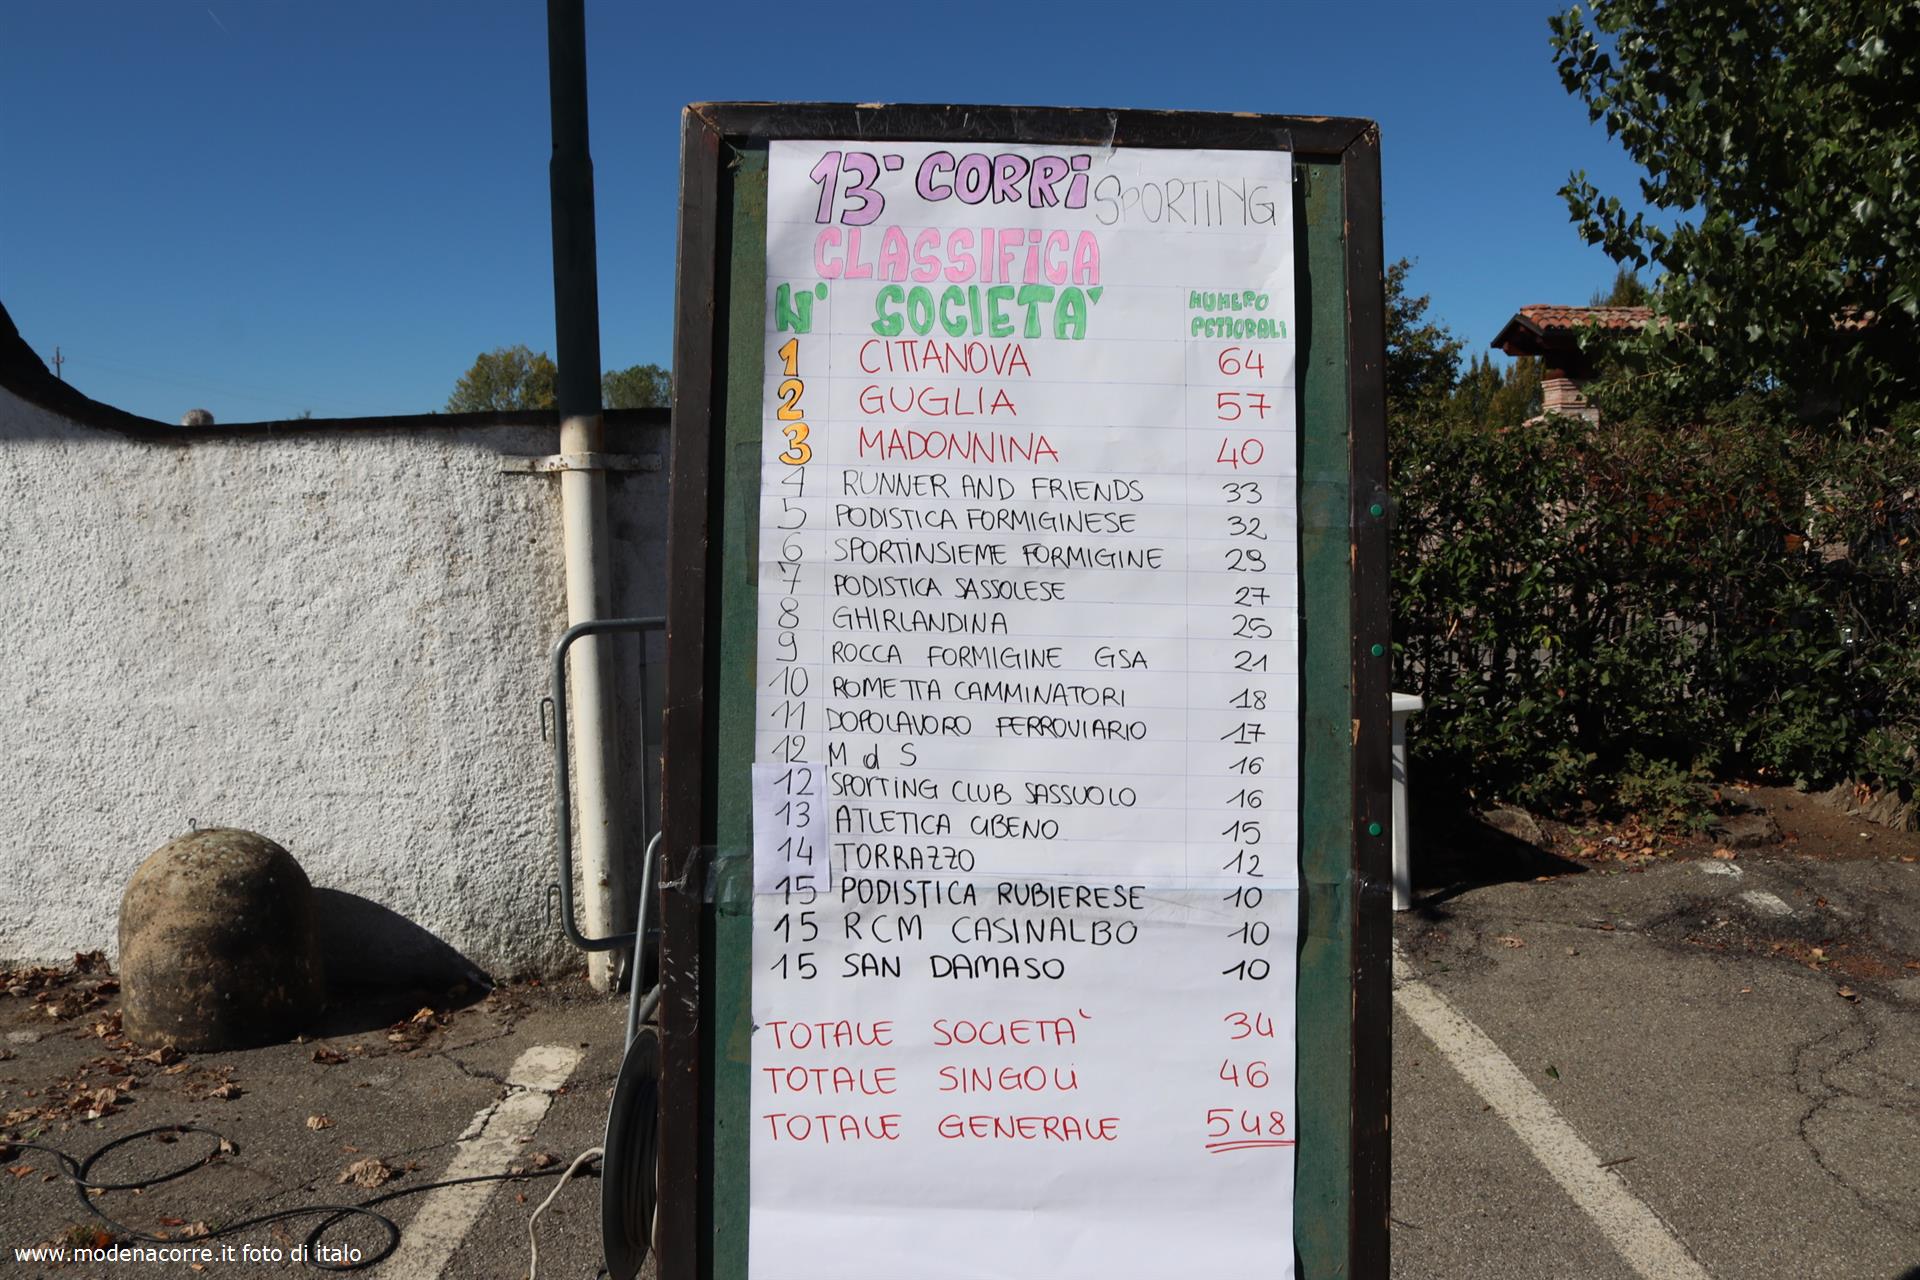 13^ CORRI SPORTING
CLASSIFICA
N° SOCIETA' NUMERO PETTORALI
1 CITTANOVA 64
2 GUGLIA 57
3 MADONNINA 40
4 RUNNER AND FRIENDS 33
5 PODISTICA FORMIGINESE 32
6 SPORTINSIEME FORMIGINE 29
7 PODISTICA SASSOLESE 27
8 GHIRLANDINA 25
9 ROCCA FORMIGINE GSA 21
10 ROMETTA CAMMINATORI 18
11 DOPOLAVORO FERROVIARIO 17
12 M d S 16
12 SPORTING CLUB SASSUOLO 16
13 ATLETICA CIBENO 15
14 TORRAZZO 12
15 PODISTICA RUBIERESE 10
15 RCM CASINALBO 10
15 SAN DAMASO 10
TOTALE SOCIETA' 34
TOTALE SINGOLI 46
TOTALE GENERALE 548
www.modenacorre.it foto di italo